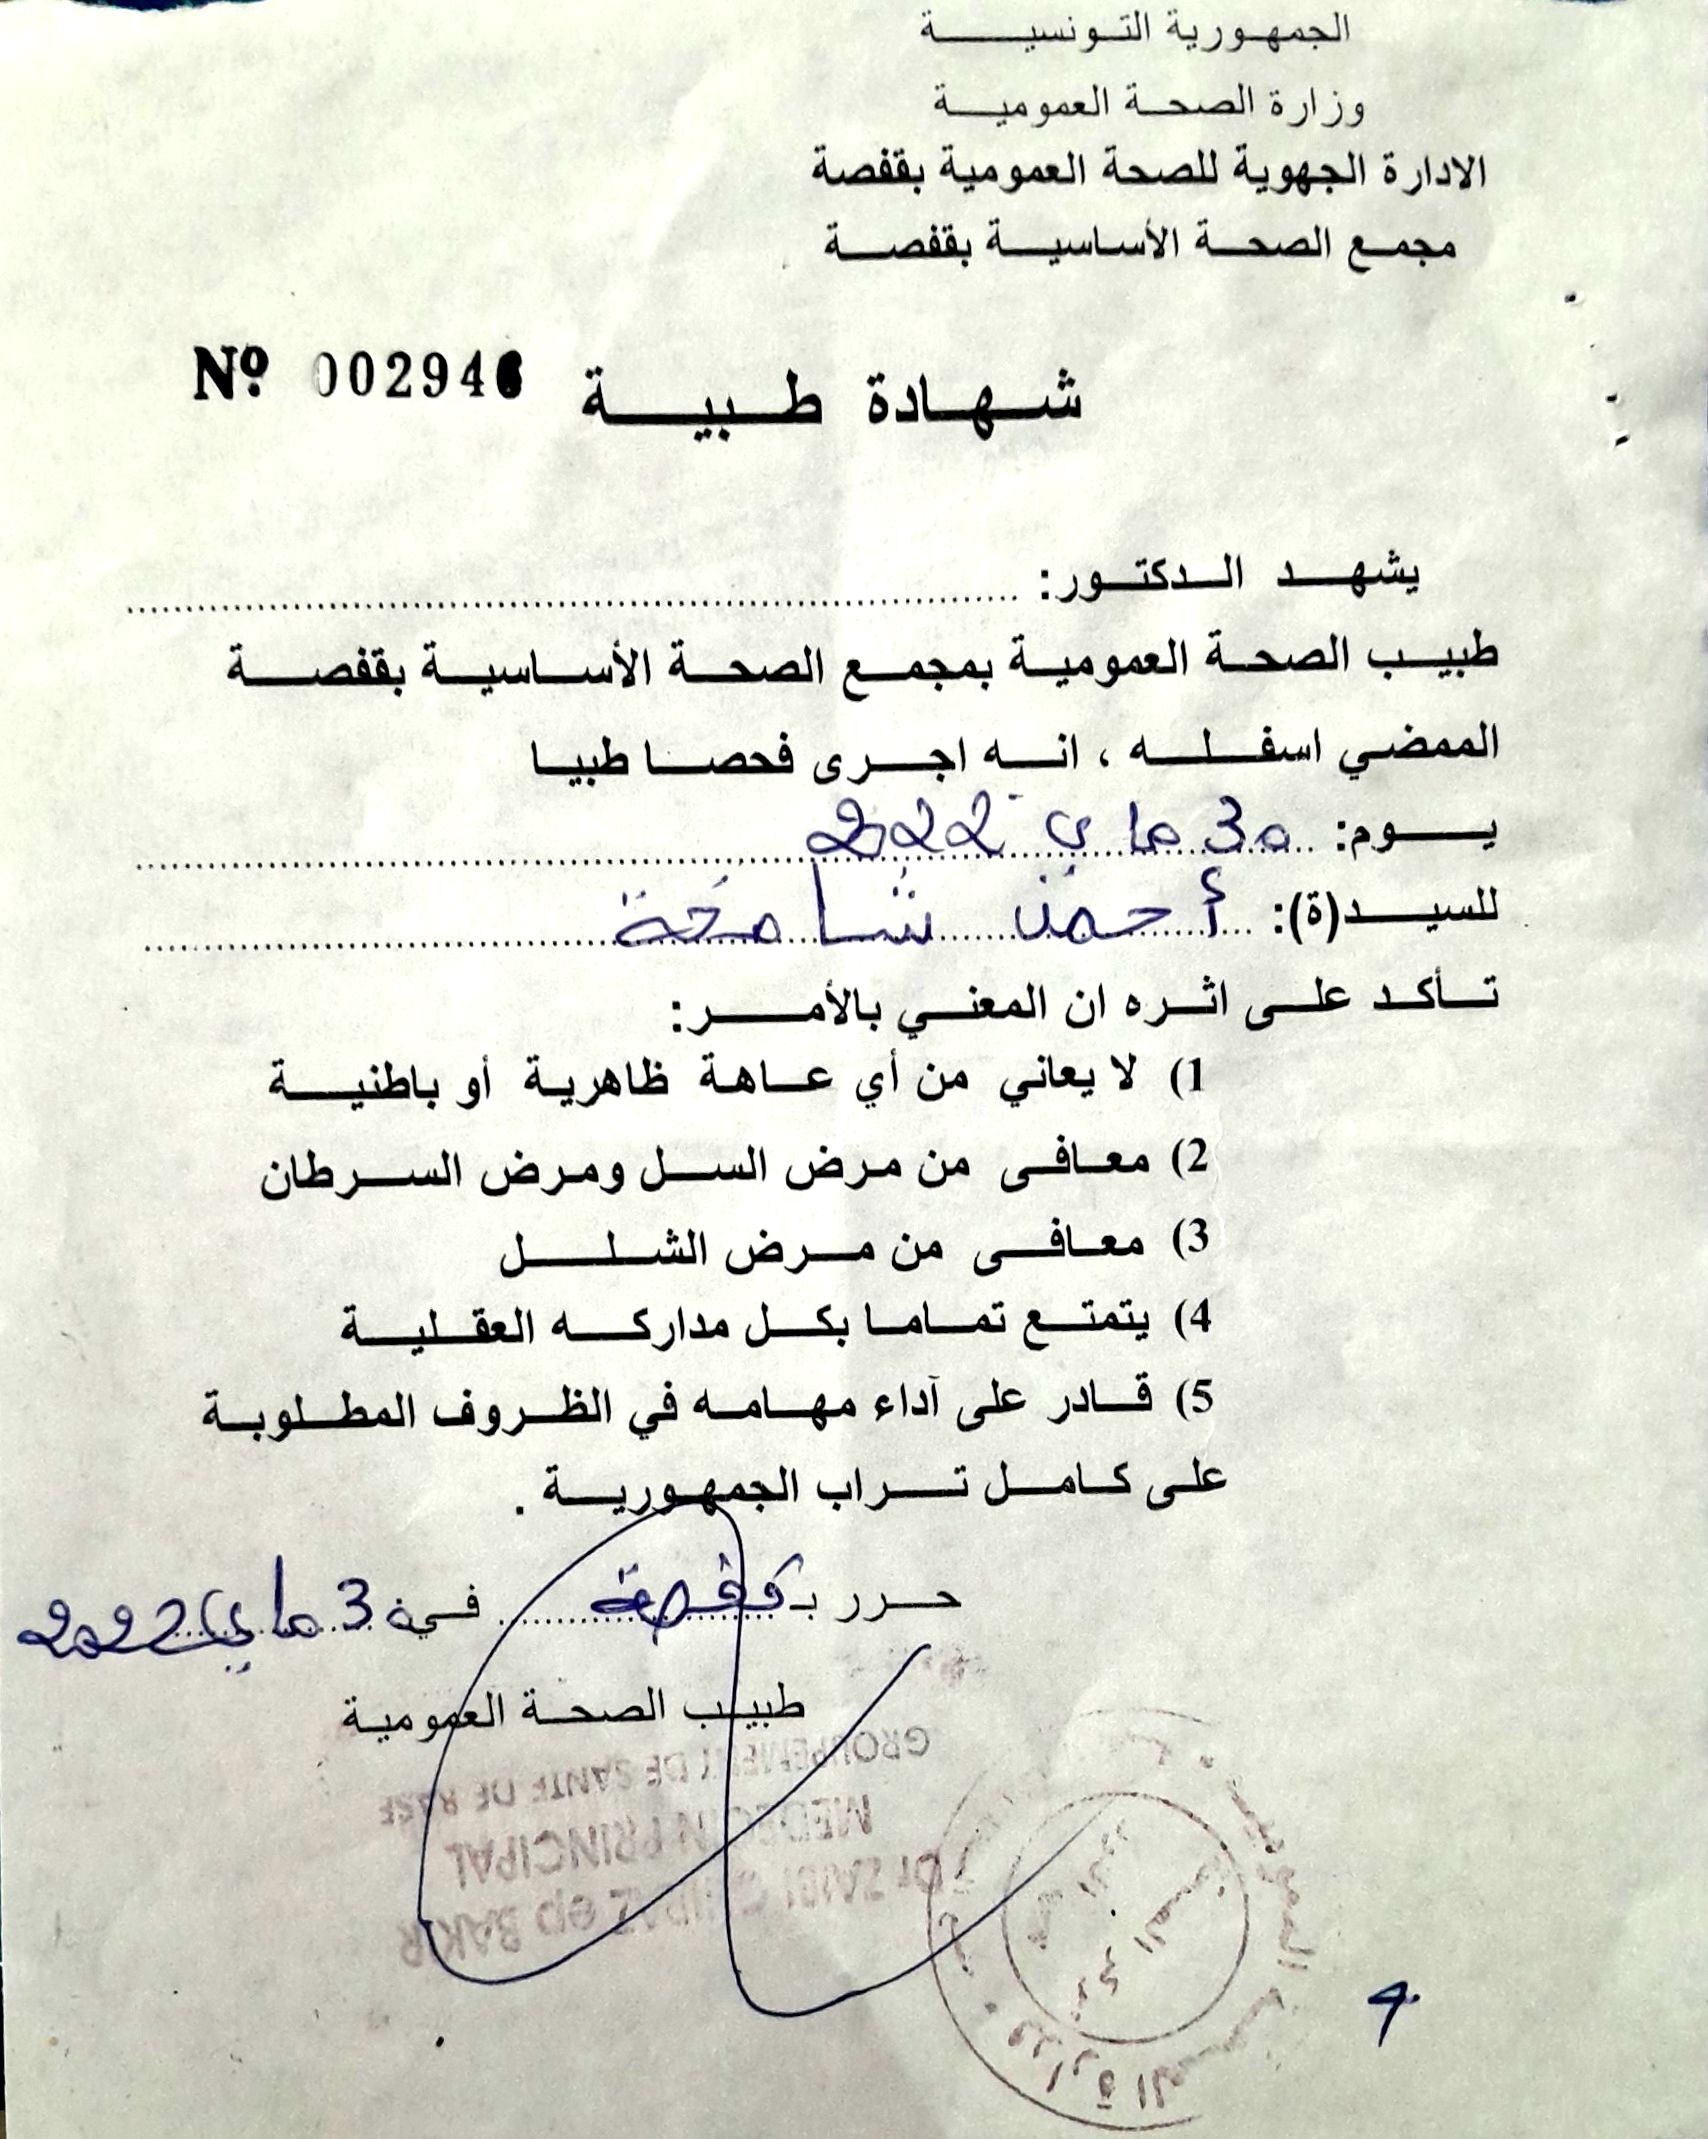 الجمهورية التونسية
وزارة الصحة العمومية
الادارة الجهوية للصحة العمومية بقفصة
مجمع الصحة الأساسية بقفصة
شهادة طبية Nº 002946
يشهد الدكتور:
طبيب الصحة العمومية بمجمع الصحة الأساسية بقفصة
الممضي اسفله ، انه اجرى فحصا طبيا
يوم: 30 ماي 2022
للسيد(ة): أحمد شامخة
تأكد على اثره ان المعني بالأمر:
1) لا يعاني من أي عاهة ظاهرية أو باطنية
2) معافى من مرض السل ومرض السرطان
3) معافى من مرض الشلل
4) يتمتع تماما بكل مداركه العقلية
5) قادر على آداء مهامه في الظروف المطلوبة
على كامل تراب الجمهورية .
حرر بـ قفصة في 30 ماي 2022
طبيب الصحة العمومية
GROUPEMENT DE SANTE DE BASE
MEDECIN PRINCIPAL